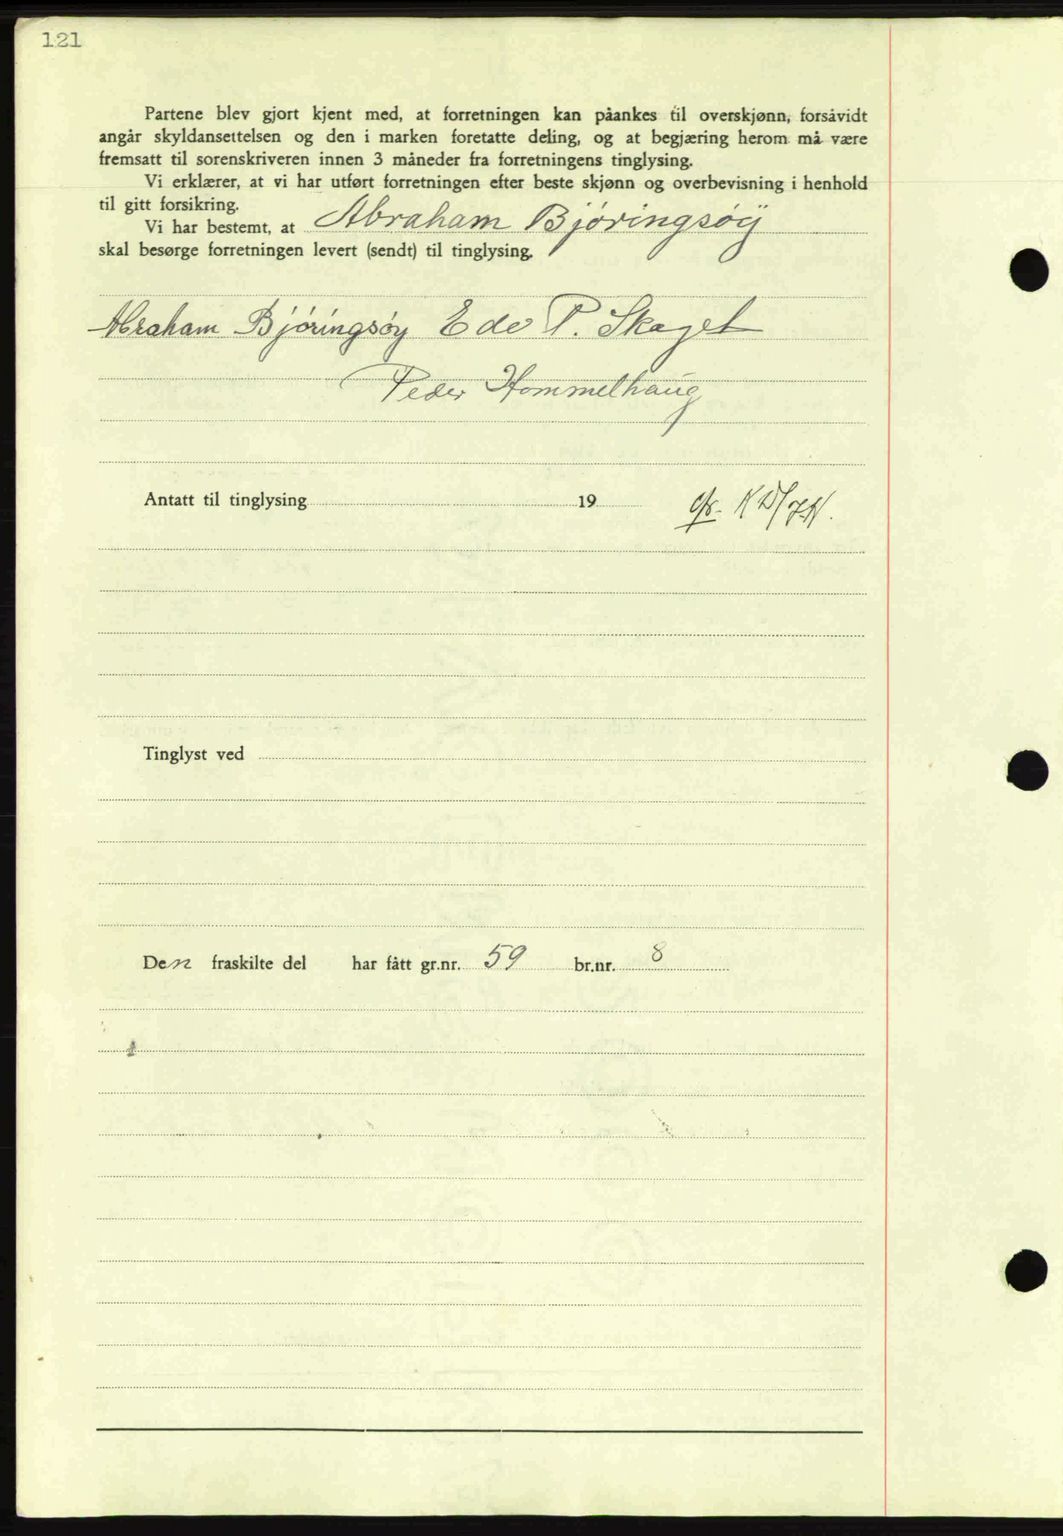 121
Partene blev gjort kjent med, at forretningen kan påankes til overskjønn, forsåvidt
angår skyldansettelsen og den i marken foretatte deling, og at begjæring herom må være
fremsatt til sorenskriveren innen 3 måneder fra forretningens tinglysing.
Vi erklærer, at vi har utført forretningen efter beste skjønn og overbevisning i henhold
til gitt forsikring.
Vi har bestemt, at Abraham Bjøringsøy
skal besørge forretningen levert (sendt) til tinglysing.
Abraham Bjøringsøy Edv P. Skaget
Peder Hommelhaug
Antatt til tinglysing 19
Tinglyst ved
Den fraskilte del har fått gr.nr. 59 br.nr. 8